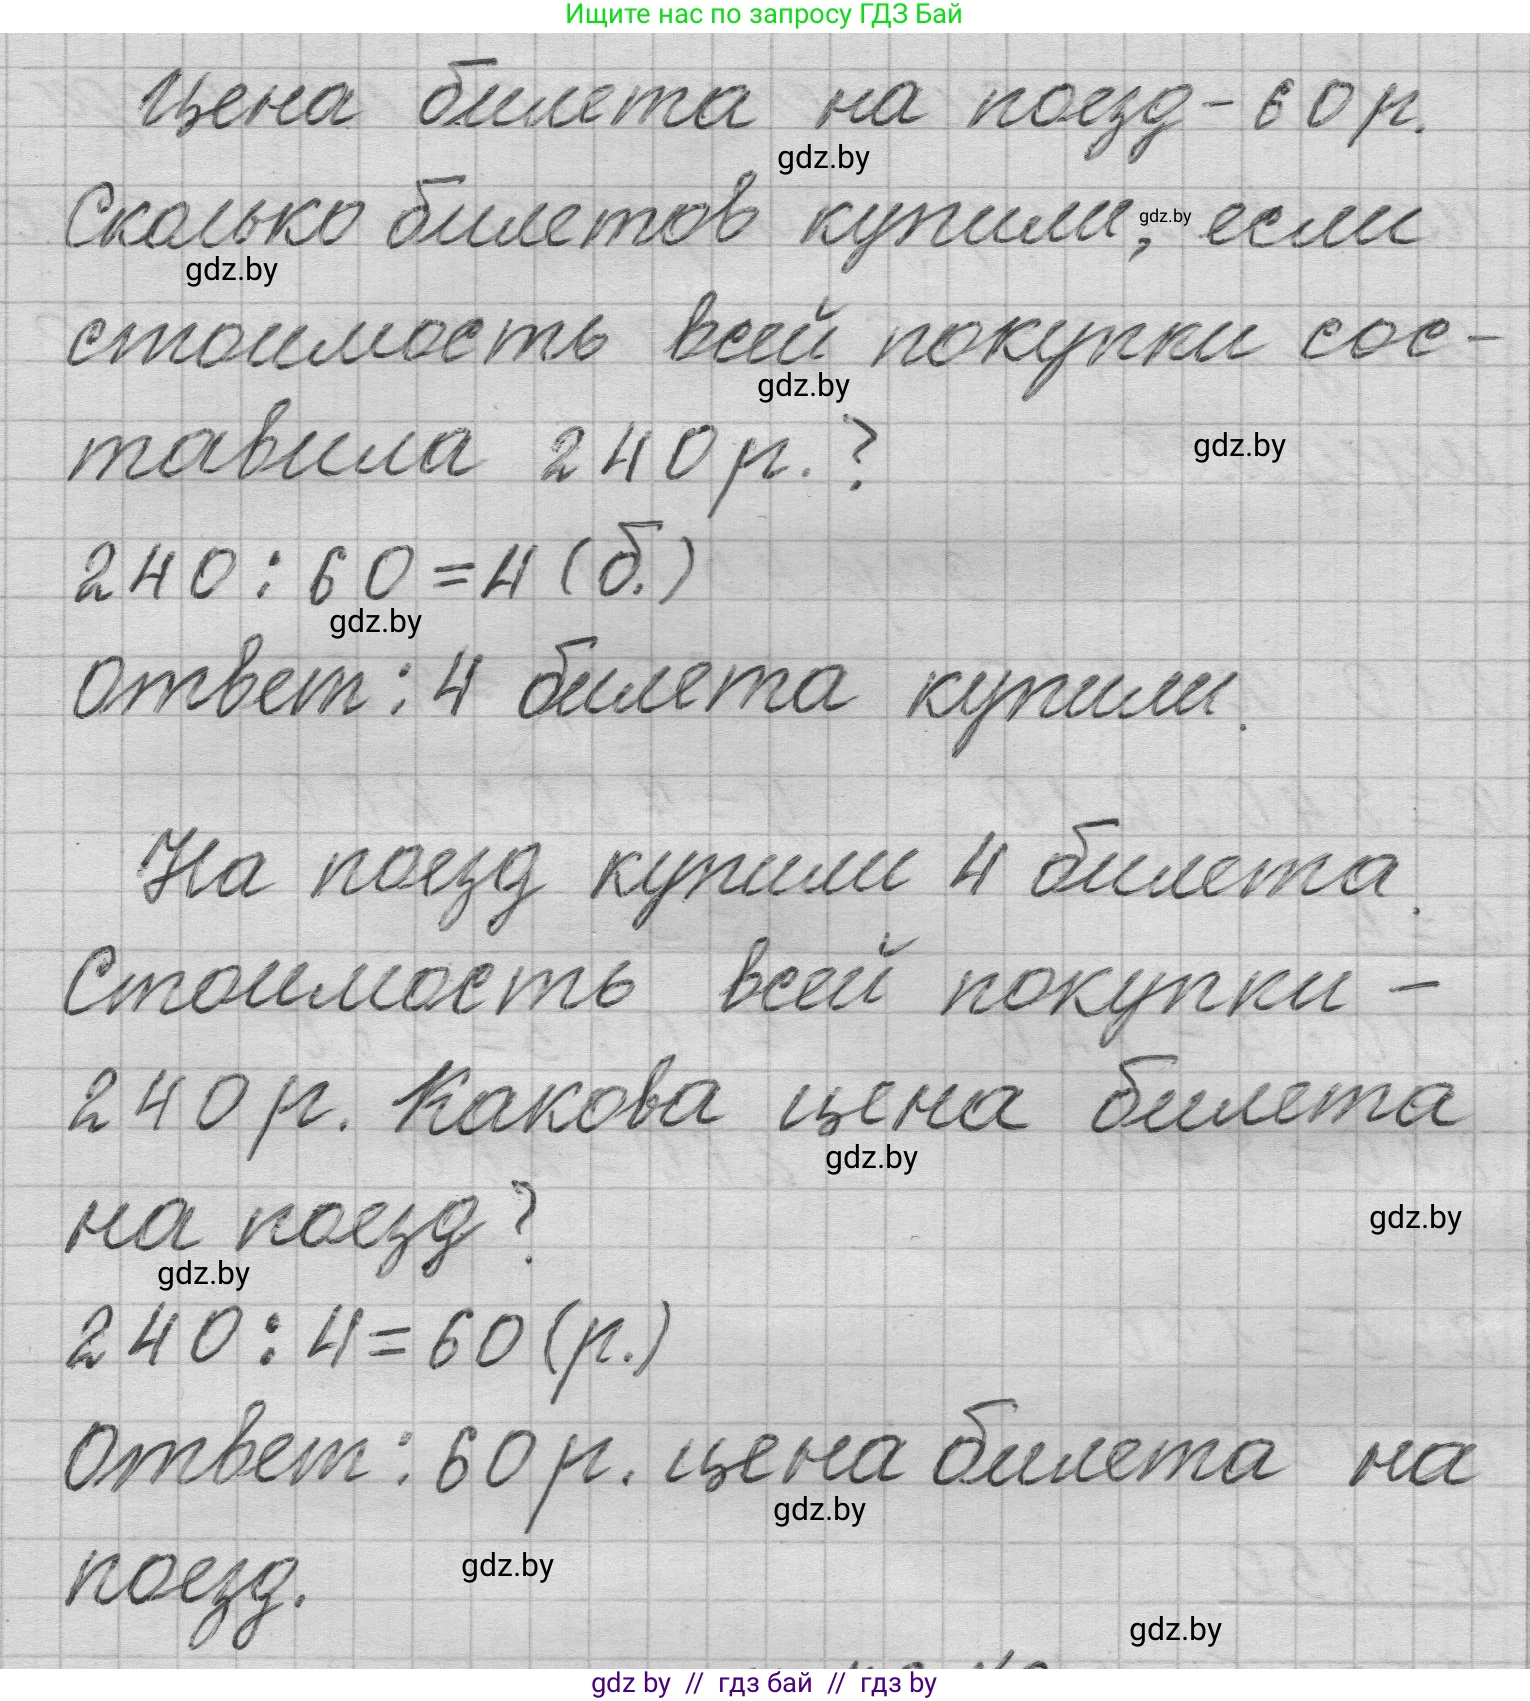 Ищите нас по запросу ГДЗ Бай
Цена билета на поезд - 60 р.
gdz.by
Сколько билетов купили, если
gdz.by
gdz.by
стоимость всей покупки сос-
gdz.by
тавила 240 р.?
gdz.by
240 : 60 = 4 (б.)
gdz.by
Ответ: 4 билета купили.
На поезд купили 4 билета.
Стоимость всей покупки -
240 р. Какова цена билета
gdz.by
на поезд?
gdz.by
gdz.by
240 : 4 = 60 (р.)
Ответ: 60 р. цена билета на
gdz.by
поезд.
gdz.by
gdz.by
gdz by // гдз бай // гдз by